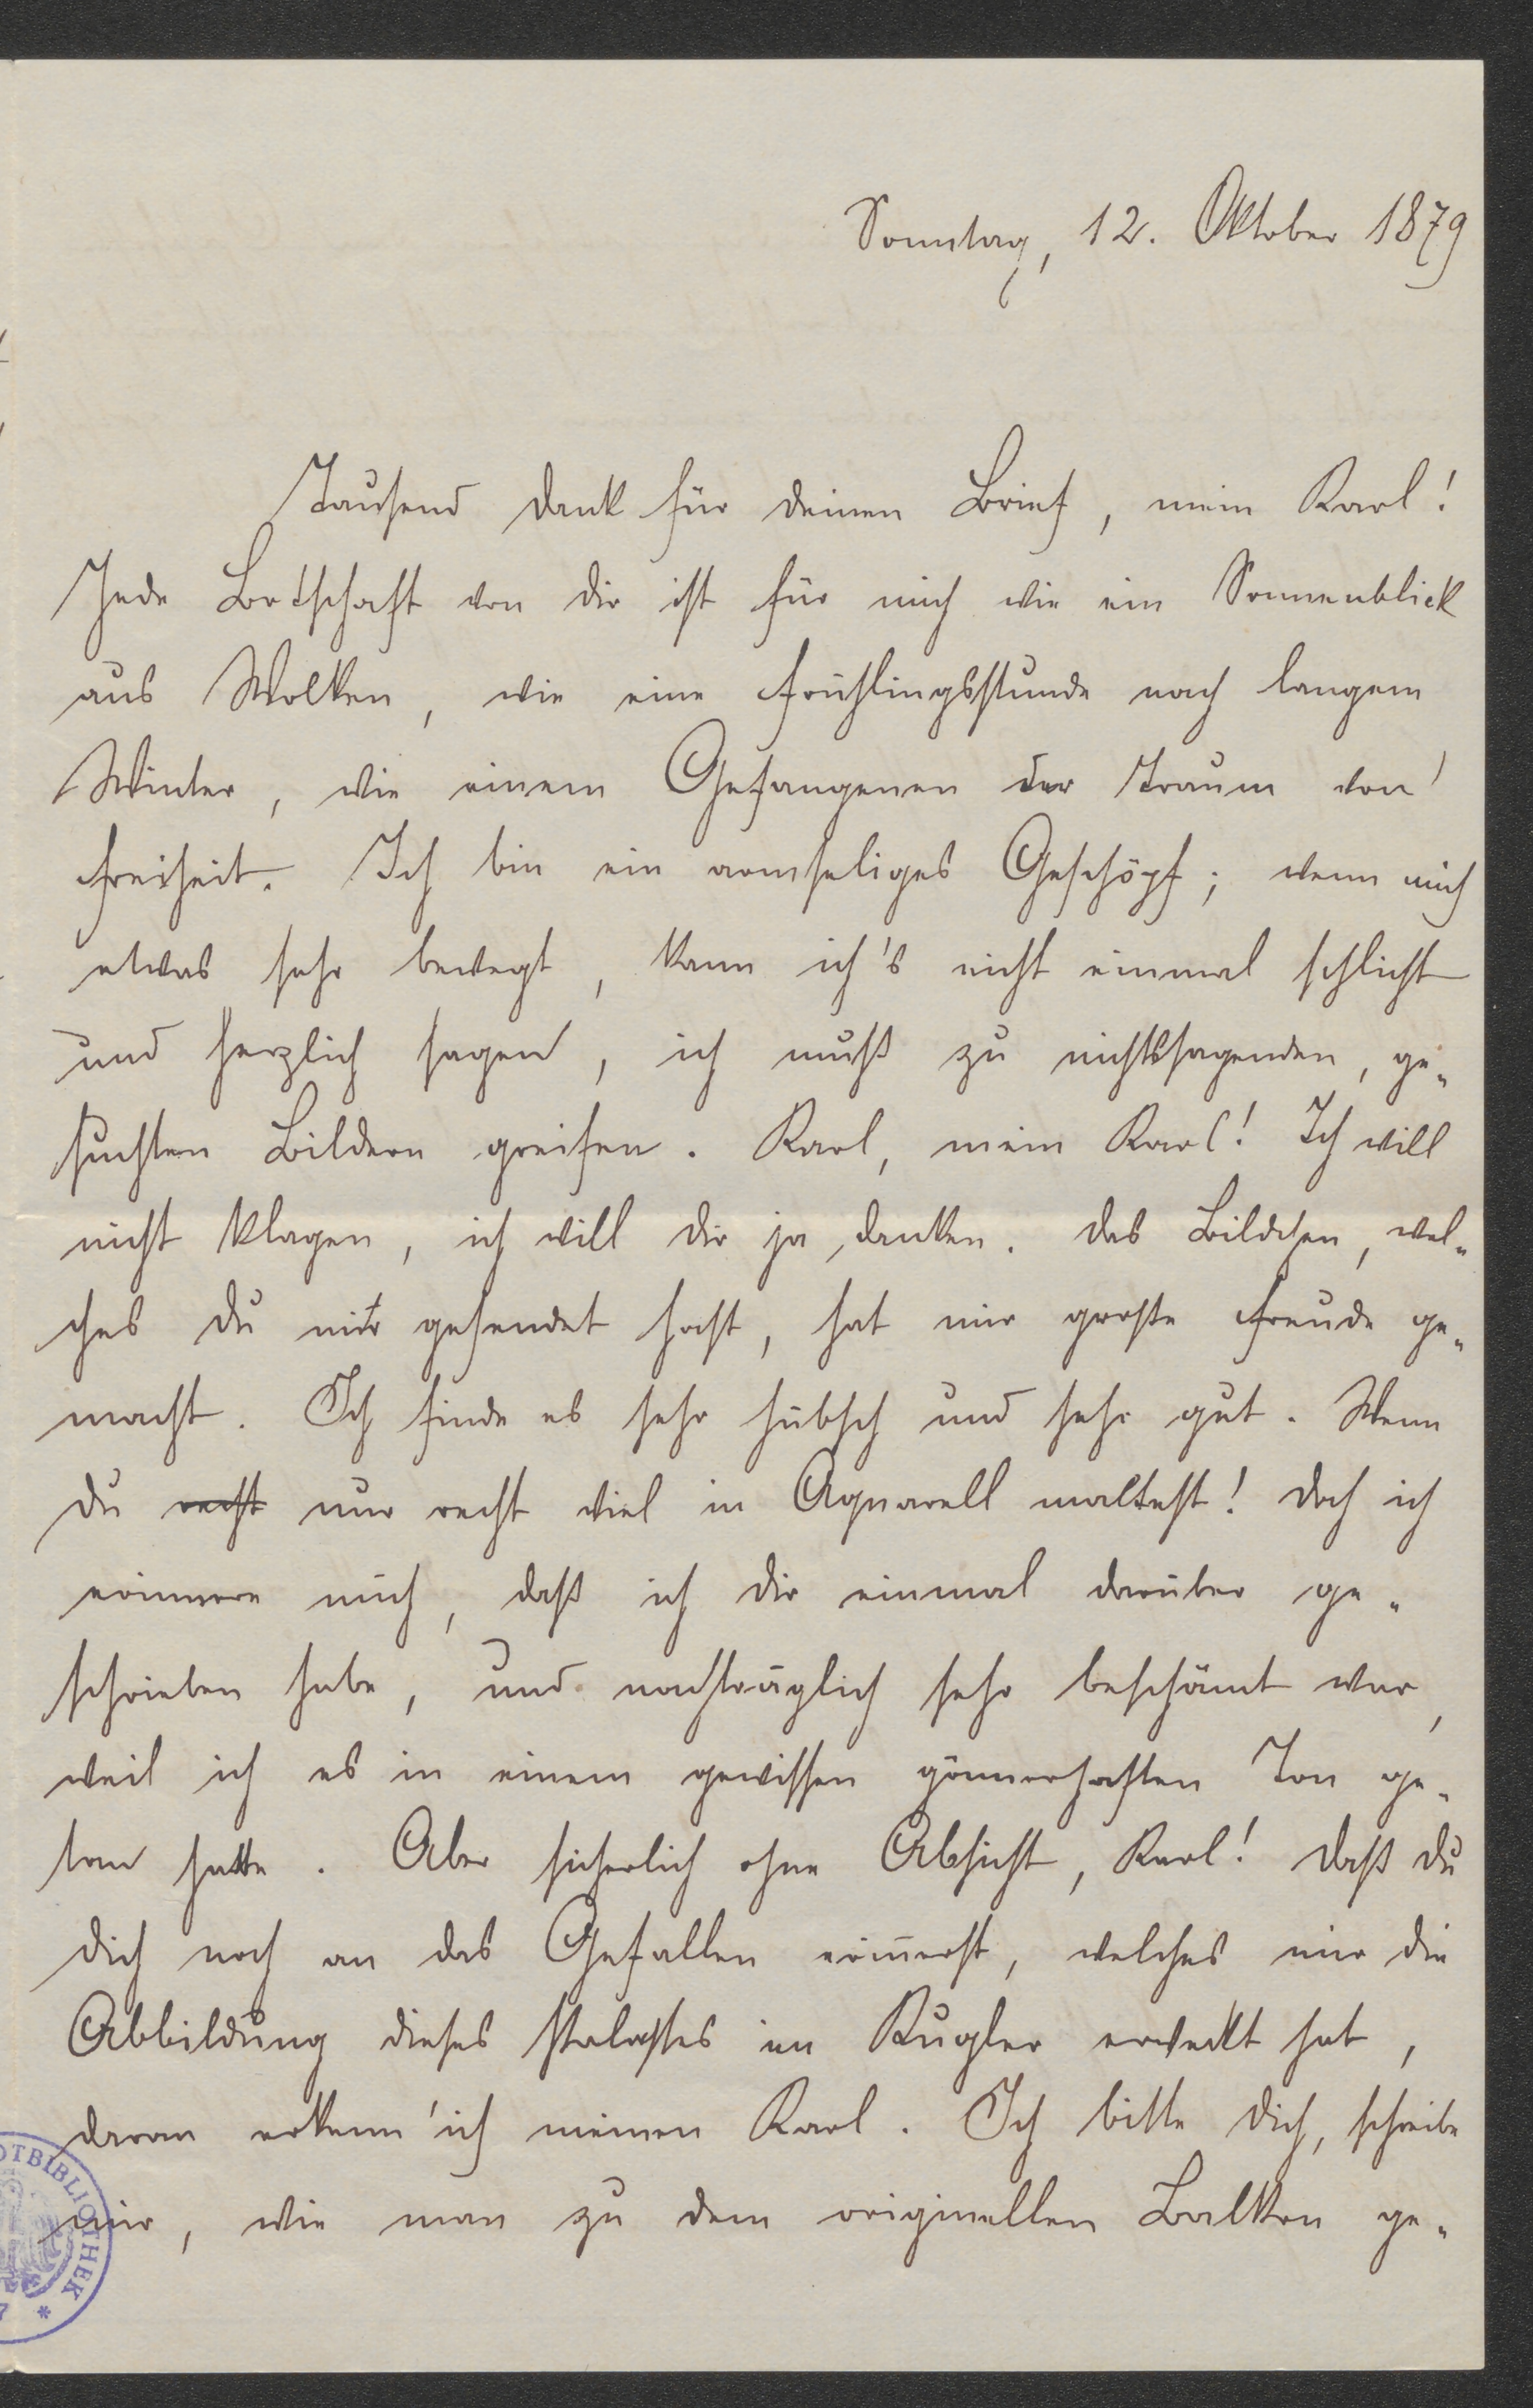 Sonntag, 12. Oktober 1879
Tausend Dank für deinen Brief, mein Karl!
Jede Botschaft von dir ist für mich wie ein Sonnenblick
aus Wolken, wie eine Frühlingsstunde nach langem
Winter, wie einem Gefangenen der Traum von
Freiheit. Ich bin ein armseliges Geschöpf; wenn mich
etwas sehr bewegt, kann ich's nicht einmal schlicht
und herzlich sagen, ich muß zu nichtssagenden, ge-
suchten Bildern greifen. Karl, mein Karl! Ich will
nicht klagen, ich will dir ja danken. Das Bildchen, wel-
ches du mir gesendet hast, hat mir große Freude ge-
macht. Ich finde es sehr hübsch und sehr gut. Wenn
du recht nur recht viel in Aquarell maltest! Doch ich
erinnere mich, daß ich dir einmal darüber ge-
schrieben habe, und nachträglich sehr beschämt war,
weil ich es in einem gewissen gönnerhaften Ton ge-
tan hatte. Aber sicherlich ohne Absicht, Karl! Daß du
dich noch an das Gefallen erinnerst, welches mir die
Abbildung dieses Palastes im Kugler erweckt hat,
daran erkenn' ich meinen Karl. Ich bitte dich, schreibe
mir, wie man zu dem originellen Balkon ge-
OTBIBLIOTHEK
7 *